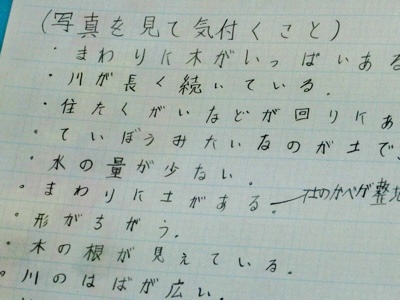 (写真を見て気付くこと)
・まわりに木がいっぱいある
・川が長く続いている。
・住たくがいなどが回りにあ
・ていぼうみたいなのが土で、
・水の量が少ない。
・まわりに土がある。←社のかべが整
・形がちがう。
・木の根が見えている。
・川のはばが広い。